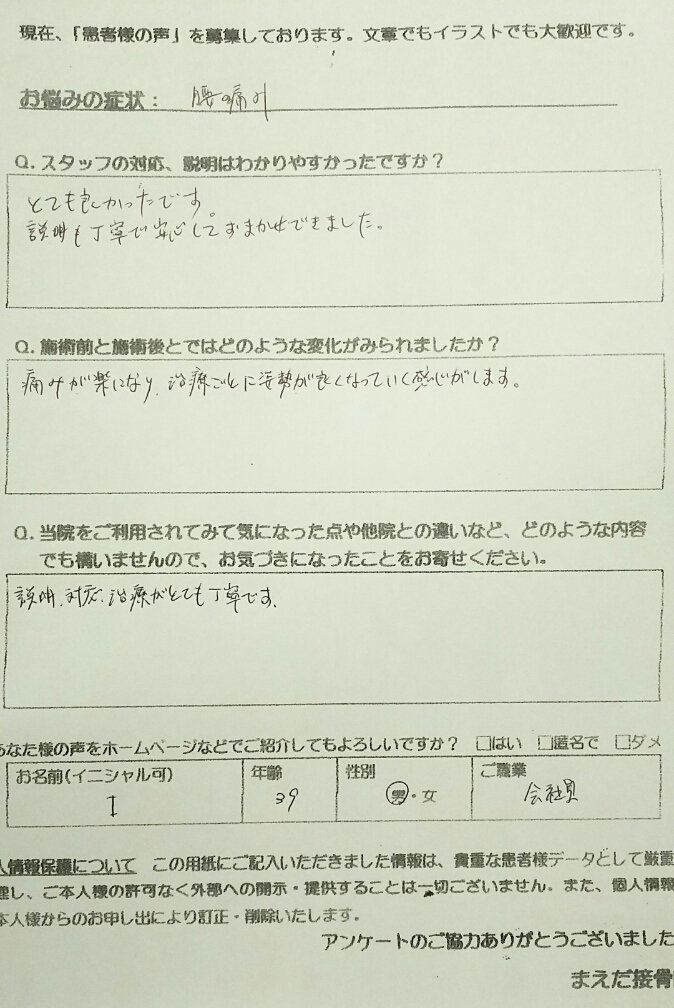 現在、「患者様の声」を募集しております。文章でもイラストでも大歓迎です。
お悩みの症状： 腰の痛み
Q. スタッフの対応、説明はわかりやすかったですか？
とても良かったです。
説明も丁寧で安心しておまかせできました。
Q. 施術前と施術後とではどのような変化がみられましたか？
痛みが楽になり、治療ごとに姿勢が良くなっていく感じがします。
Q. 当院をご利用されてみて気になった点や他院との違いなど、どのような内容
でも構いませんので、お気づきになったことをお寄せください。
説明、対応、治療がとても丁寧です、
あなた様の声をホームページなどでご紹介してもよろしいですか？ □はい □匿名で □ダメ
お名前(イニシャル可) 年齢 性別 ご職業
I 39 男・女 会社員
人情報保護について この用紙にご記入いただきました情報は、貴重な患者様データとして厳重
理し、ご本人様の許可なく外部への開示・提供することは一切ございません。また、個人情報
本人様からのお申し出により訂正・削除いたします。
アンケートのご協力ありがとうございました
まえだ接骨